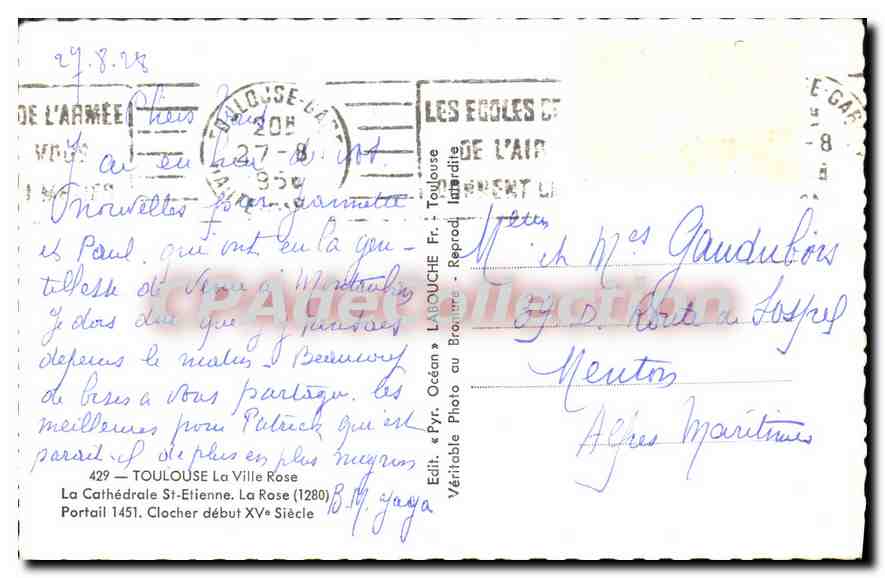 27.8.58
DE L'ARMÉE
VOUS
TOULOUSE-GARE
20H
27-8
195
LES ECOLES DE
DE L'AIR
DONNENT
E-GAR
8
Chers tous
J'ai eu hier de vos
nouvelles par Jeannette
et Paul qui ont eu la gen-
tillesse de venir à Montauban
Je dois dire que j'y pensais
depuis le matin. Beaucoup
de bises à vous partager. les
meilleures pour Patrick qui est
parait-il de plus en plus mignon
B. M. Yaya
429 — TOULOUSE La Ville Rose
La Cathédrale St-Etienne. La Rose (1280)
Portail 1451. Clocher début XVe Siècle
Edit. « Pyr. Océan » LABOUCHE Fr. - Toulouse
Véritable Photo au Bromure - Reprod. Interdite
et Mes Gaudubois
39 D. Route de Sospel
Menton
Alpes Maritimes
CPAdeCollection